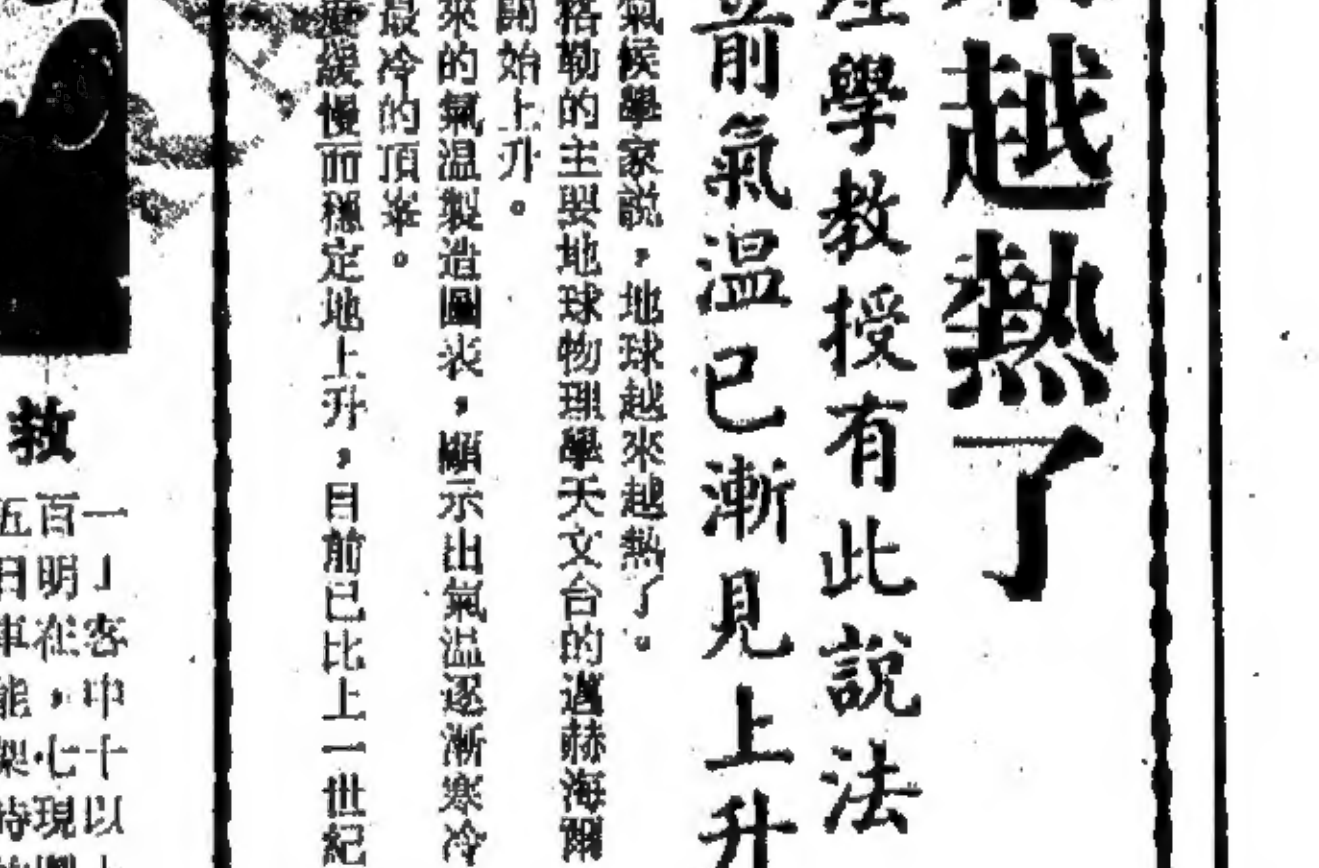 越熱了
學教授有此說法
前氣温已漸見上升
氣候學家說，地球越來越熱了。
格勒的主要地球物理學天文台的邁赫海爾
開始上升。
來的氣温製造圖表，顯示出氣温逐漸寒冷
最冷的頂峯。
緩慢而穩定地上升，目前已比上一世紀
救
一」客中十以
百明在，七現
五日車能架時